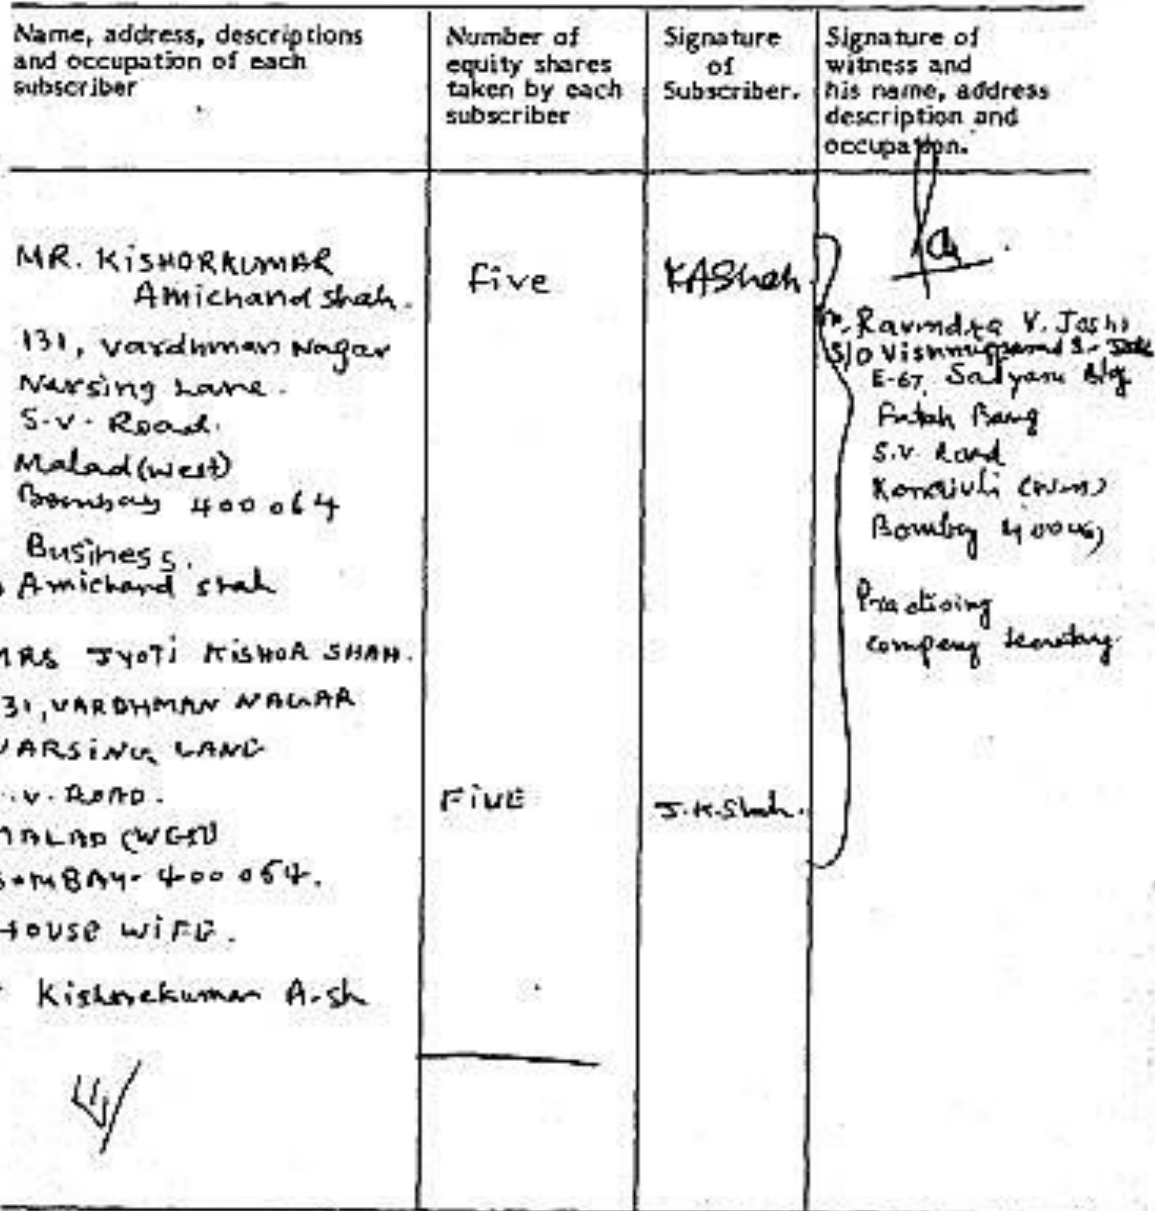 Name, address, descriptions
and occupation of each
subscriber
Number of
equity shares
taken by each
subscriber
Signature
of
Subscriber.
Signature of
witness and
his name, address
description and
occupation.
MR. KISHORKUMAR
Amichand shah.
131, vardhman Nagar
Narsing Lane.
S.V. Road.
Malad (west)
Bombay 400 064
Business.
Amichand shah
Five
KAShah
Ravindra V. Joshi
S/O
E-67, Satyam Bldg
S.V. Road
Bombay
Practising
company secretary
MRS JYOTI KISHOR SHAH.
31, VARDHMAN NAGAR
ARSING LANE
.V. ROAD.
MALAD (WEST)
BOMBAY- 400 064.
HOUSE WIFE.
Kishorekumar A. sh
FIVE
J.K.Shah.